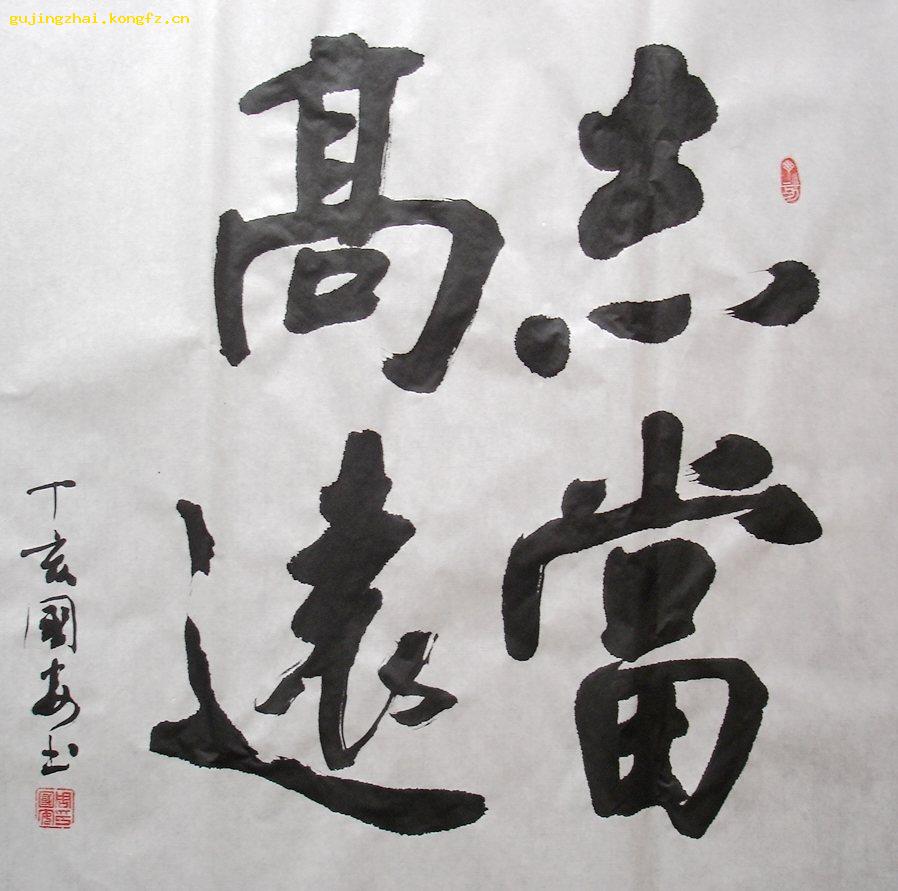 gujingzhai.kongfz.cn
志當
髙遠
丁亥國安书